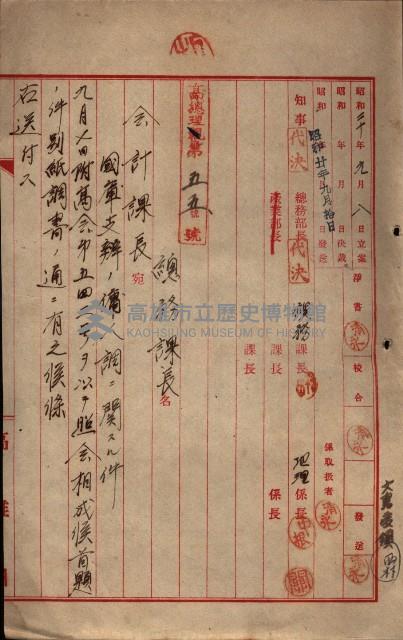 昭和二十年九月八日立案
昭和 年 月 日決裁
昭和廿年九月拾日發送
淨書
校合
發送
知事 代決
總務部長 代決
產業部長
總務課長
課長
課長
係取扱者
地理係長
係長
高總理第五五號
總務課長名
會計課長宛
國軍支辨ノ傭人調ニ關スル件
九月八日附高会第五四号ヲ以テ照会相成候首題
ノ件別紙調書ノ通ニ有之候條
右送付ス
高雄市立歷史博物館
KAOHSIUNG MUSEUM OF HISTORY
高雄州